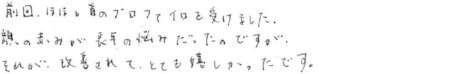 前回、ほほと首のプロファイロを受けました。
額のあみが長年の悩みだったのですが、
それが、改善されて、とても嬉しかったです。